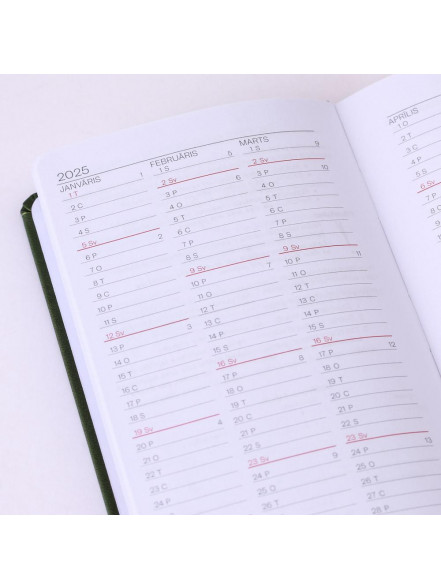 2025
JANVĀRIS
1 T 1
2 C
3 P
4 S
5 Sv
6 P 2
7 O
8 T
9 C
10 P
11 S
12 Sv
13 P 3
14 O
15 T
16 C
17 P
18 S
19 Sv
20 P 4
21 O
22 T
23 C
24 P
FEBRUĀRIS
1 S 5
2 Sv
3 P 6
4 O
5 T
6 C
7 P
8 S
9 Sv
10 P 7
11 O
12 T
13 C
14 P
15 S
16 Sv
17 P 8
18 O
19 T
20 C
21 P
22 S
23 Sv
24 P 9
25 O
26 T
27 C
MARTS
1 S 9
2 Sv
3 P 10
4 O
5 T
6 C
7 P
8 S
9 Sv
10 P 11
11 O
12 T
13 C
14 P
15 S
16 Sv
17 P 12
18 O
19 T
20 C
21 P
22 S
23 Sv
24 P 13
25 O
26 T
27 C
28 P
APRĪLIS
1 O
2 T
3 C
4 P
5 S
6 Sv
7 P
8 O
9 T